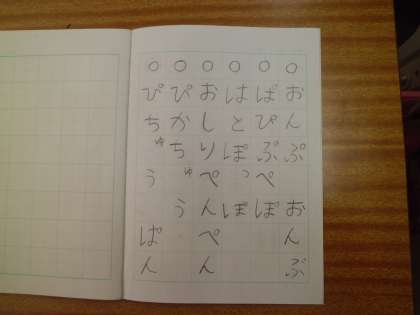 ○おんぶ おんぶ
○ぱぴぷぺぽ
○はとぽっぽ
○おしりぺんぺん
○ぴかちゅう
○ぴちゅう ぱん